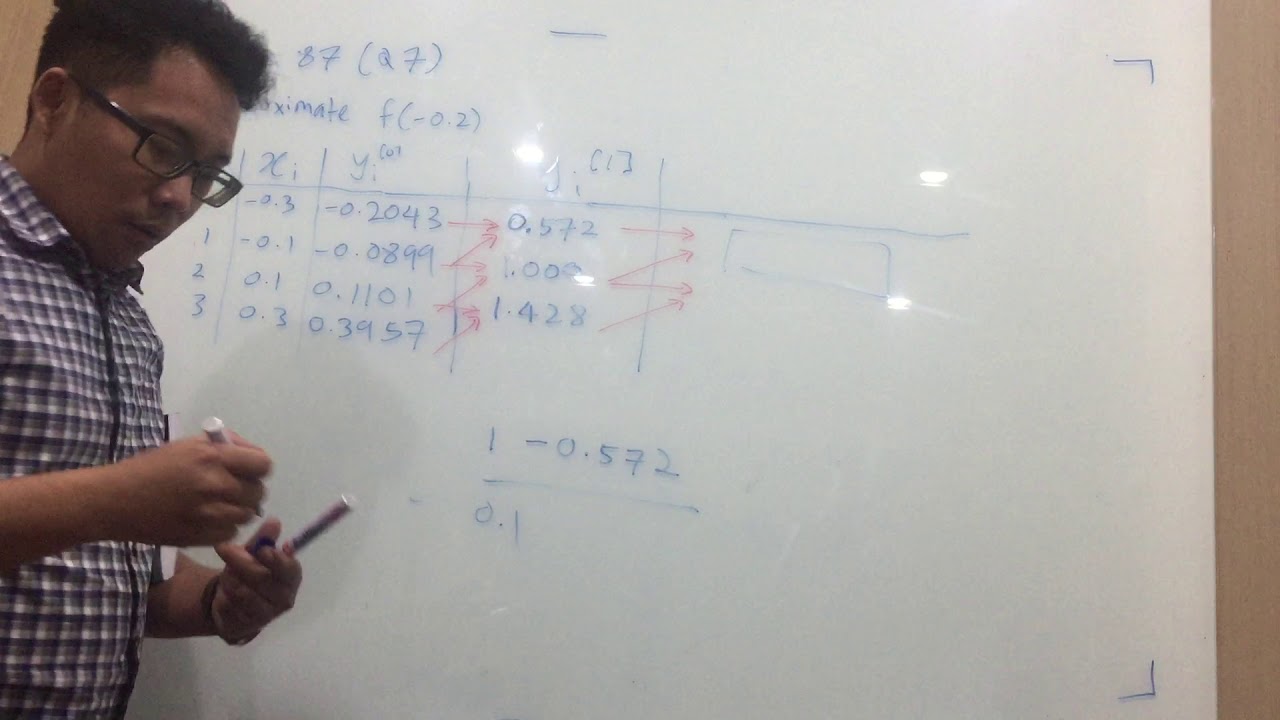 87 (Q7)
f(-0.2)
xi yi[0] yi[1]
-0.3 -0.2043 0.572
1 -0.1 -0.0899 1.000
2 0.1 0.1101 1.428
3 0.3 0.3957
1 - 0.572
0.1